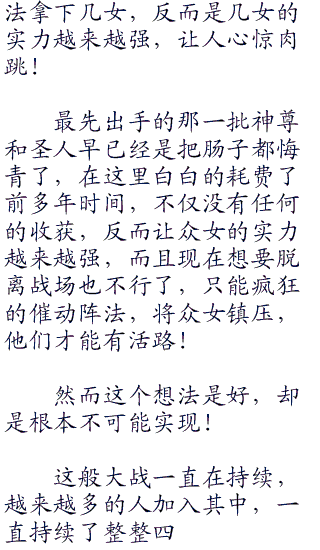 法拿下几女，反而是几女的
实力越来越强，让人心惊肉
跳！
最先出手的那一批神尊
和圣人早已经是把肠子都悔
青了，在这里白白的耗费了
前多年时间，不仅没有任何
的收获，反而让众女的实力
越来越强，而且现在想要脱
离战场也不行了，只能疯狂
的催动阵法，将众女镇压，
他们才能有活路！
然而这个想法是好，却
是根本不可能实现！
这般大战一直在持续，
越来越多的人加入其中，一
直持续了整整四